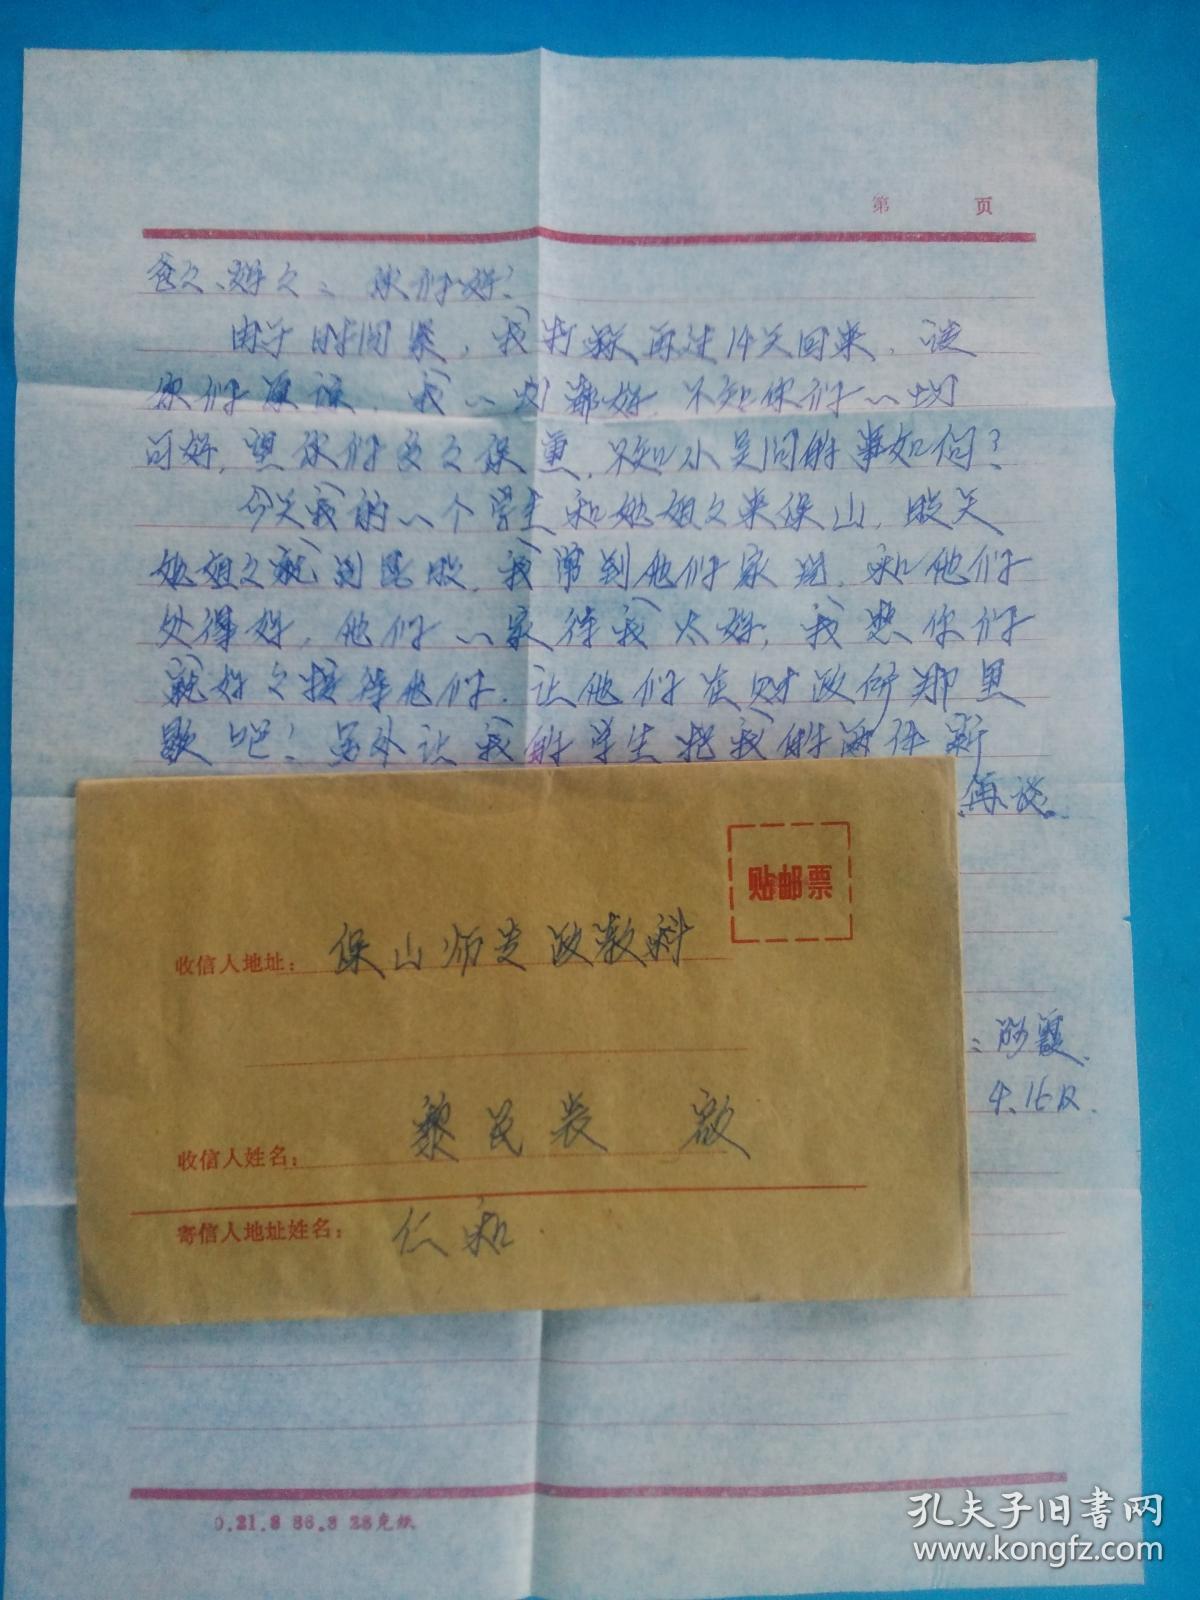 第 页
爸々、妈々: 你们好!
由于时间紧,我打算再过14天回来,请
你们原谅,我一切都好,不知你们一切
可好,望你们多々保重,不知小吴问的事如何?
今天我的一个学生和她姐々来保山,明天
她姐々就到昆明,我常到他们家玩,和他们
处得好,他们一家待我太好,我想你们
就好々接待他们,让他们在财政所那里
歇吧!另外让我的学生把我的两件新
再谈.
霞
4.16日.
贴邮票
收信人地址: 保山师专政教科
收信人姓名: 黎民表 启
寄信人地址姓名: 仁和.
0.21.8 86.8 28克纸
孔夫子旧书网
www.kongfz.com